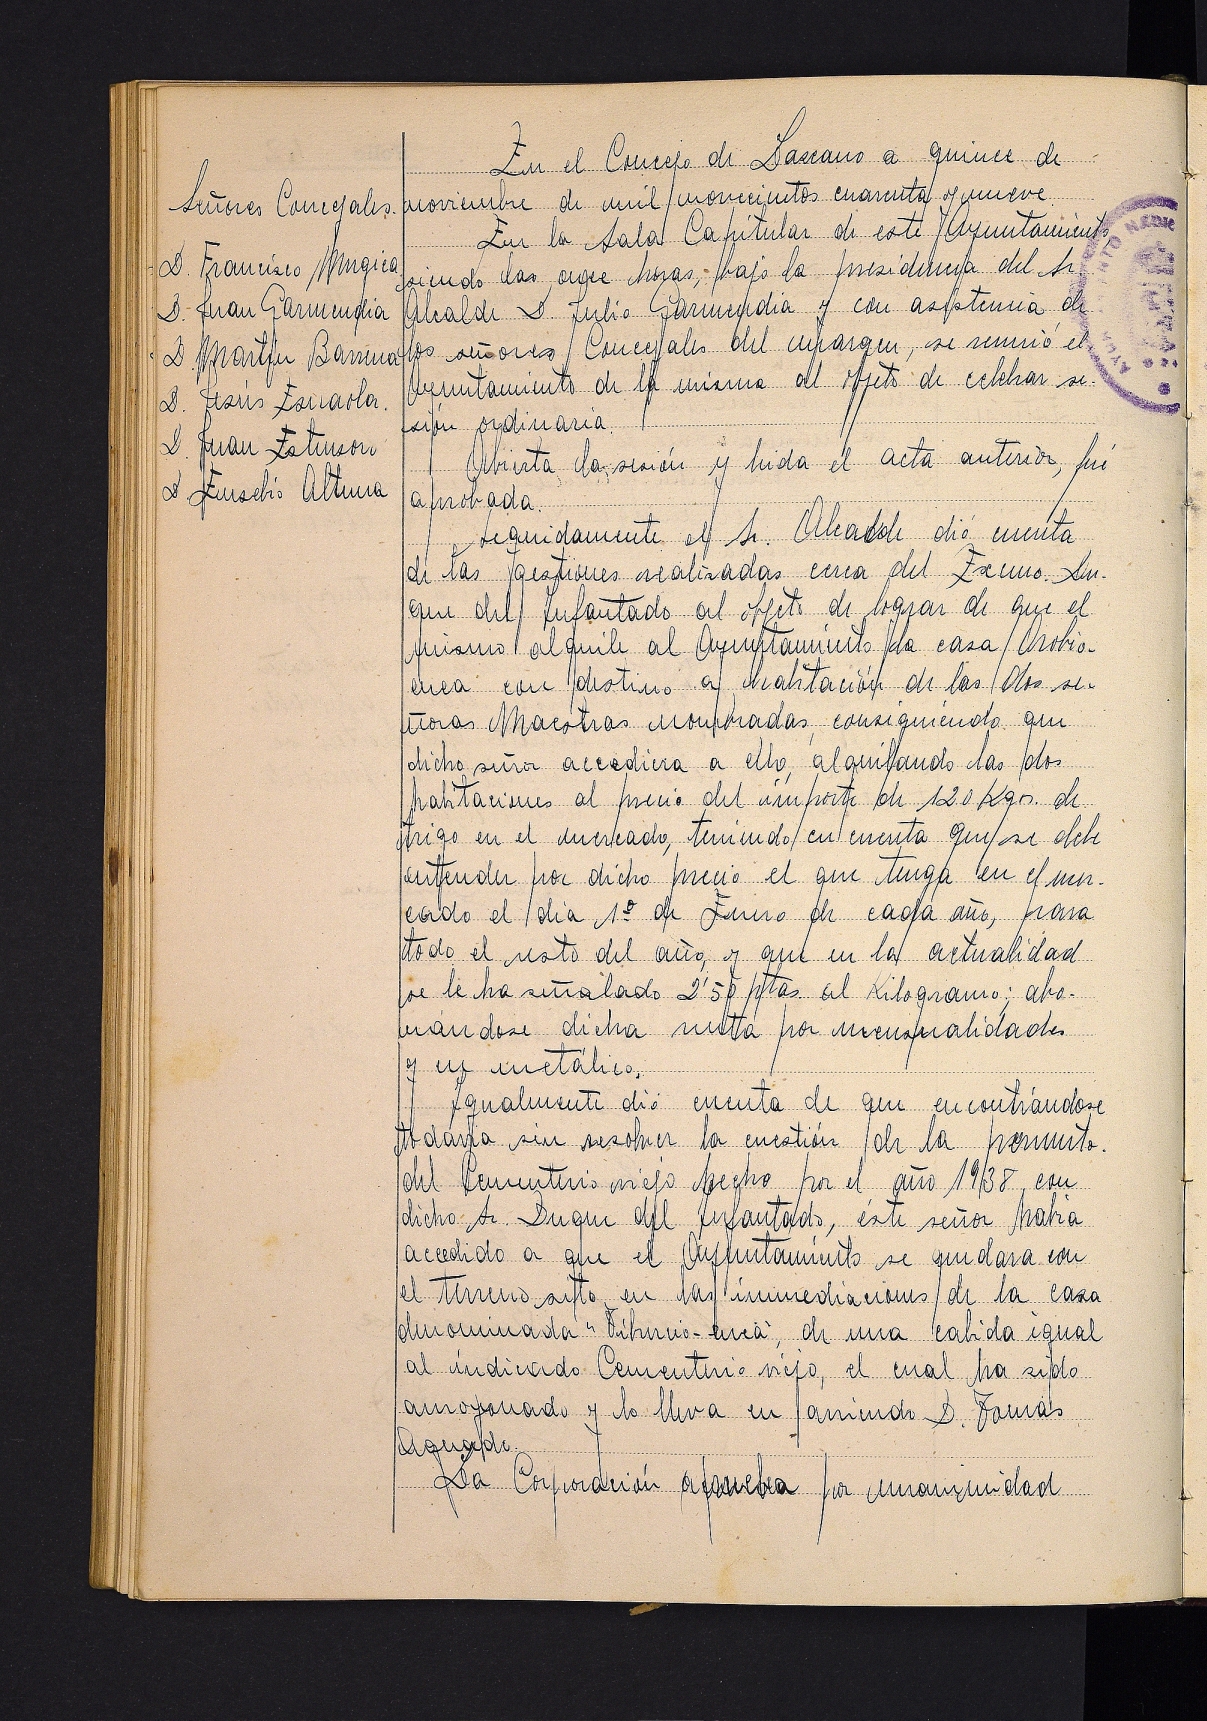 Señores Concejales.
D. Francisco Mugica
D. Juan Garmendia
D. Martin Barrena
D. Jesús Esnaola.
D. Juan
D. Eusebio Altuna
En el Concejo de Lazcano a quince de
noviembre de mil novecientos cuarenta y nueve.
En la Sala Capitular de este Ayuntamiento
siendo las once horas, bajo la presidencia del Sr.
Alcalde D. Julio Garmendia y con asistencia de
los señores Concejales del margen, se reunió el
Ayuntamiento de la misma al objeto de celebrar se-
sión ordinaria.
Abierta la sesión y leida el acta anterior, fué
aprobada.
Seguidamente el Sr. Alcalde dió cuenta
de las gestiones realizadas cerca del Excmo. Du-
que del Infantado al objeto de lograr de que el
mismo alquile al Ayuntamiento la casa
enea con destino a habitación de las dos se-
ñoras Maestras nombradas, consiguiendo que
dicho señor accediera a ello, alquilando las dos
habitaciones al precio del importe de 120 Kgs. de
trigo en el mercado, teniendo en cuenta que se debe
entender por dicho precio el que tenga en el mer-
cado el dia 1º de Enero de cada año, para
todo el resto del año, y que en la actualidad
se le ha señalado 2'50 ptas. al Kilogramo; abo-
nándose dicha renta por mensualidades
y en metálico.
Igualmente dió cuenta de que encontrándose
todavia sin resolver la cuestión de la permuta
del Cementerio viejo hecho por el año 1938 con
dicho Sr. Duque del Infantado, éste señor habia
accedido a que el Ayuntamiento se quedara con
el terreno sito en las inmediaciones de la casa
denominada "Tiburcio-enea", de una cabida igual
al indicado Cementerio viejo, el cual ha sido
amojonado y lo lleva en arriendo D. Tomás
Aguado.
La Corporación aprueba por unanimidad